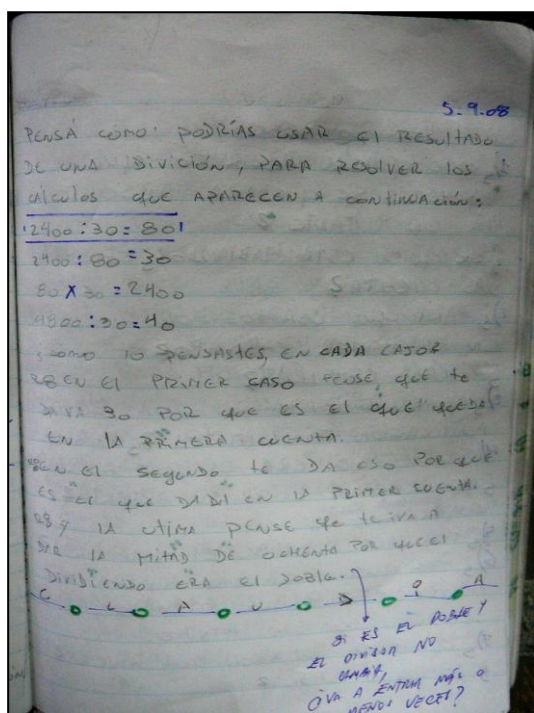 5.9.08
PENSÁ CÓMO PODRÍAS USAR El RESULTADO
DE UNA DIVICIÓN, PARA RESOLVER LOS
CÁLCULOS QUE APARECEN A CONTINUACIÓN:
2400:30=80
2400:80=30
80X30=2400
4800:30=40
¿CÓMO lO PENSASTES, EN CADA CASO?
EN El PRIMER CASO PENSE QUE te
DAVA 30 POR QUE ES El QUE QUEDA
EN lA PRIMERA CUENTA.
EN El SEGUNDO te DA ESO POR QUE
ES El QUE DA EN lA PRIMER CUENTA.
Y lA UTIMA PENSE QUE te IVA A
DAR lA MITAD DE OCHENTA POR QUE El
DIVIDIENDO ERA El DOBLE.
C L A U D I A
SI ES EL DOBLE Y
EL DIVISOR NO
CAMBIA,
¿VA A ENTRAR MÁS O
MENOS VECES?